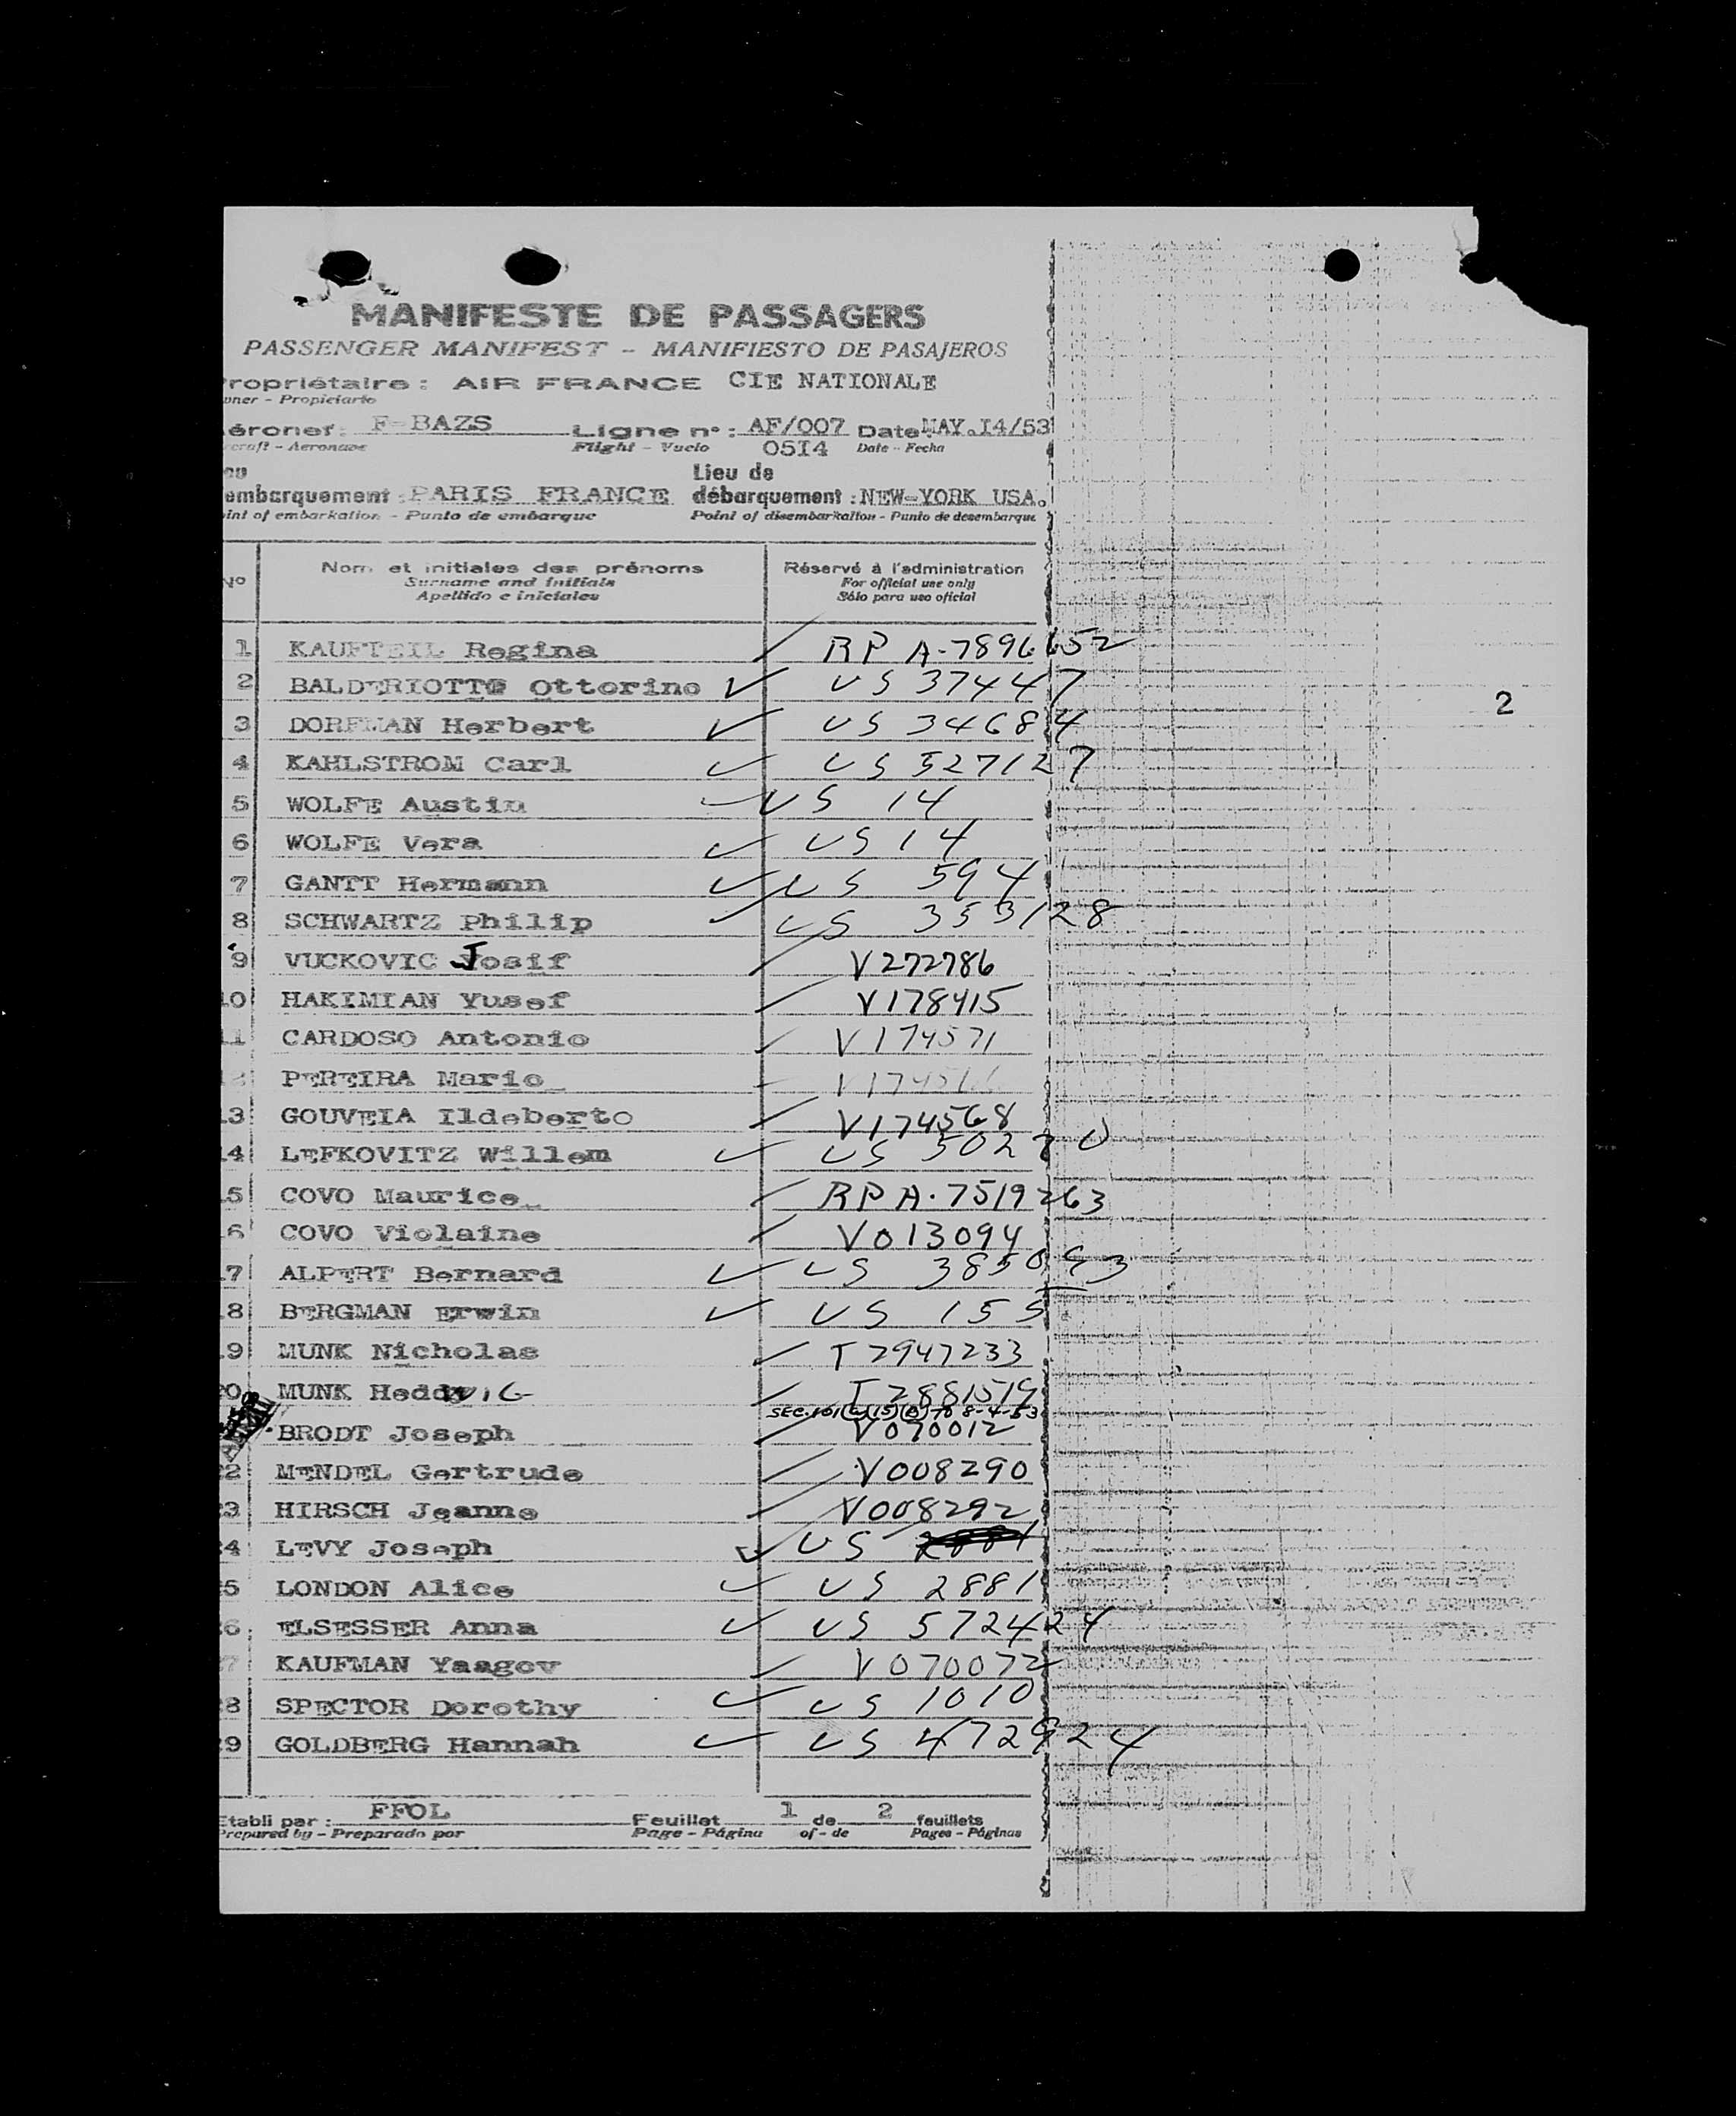 MANIFESTE DE PASSAGERS
PASSENGER MANIFEST - MANIFIESTO DE PASAJEROS
ropriétaire : AIR FRANCE CIE NATIONALE
wner - Propietario
éronef: F-BAZS Ligne n° : AF/007 Date: MAY.I4/53
rcraft - Aeronave Flight - Vuelo 05I4 Date - Fecha
eu Lieu de
embarquement : PARIS FRANCE débarquement : NEW-YORK USA.
oint of embarkation - Punto de embarque Point of disembarkation - Punto de desembarque
N° Nom et initiales des prénoms Réservé à l'administration
Surname and initials For official use only
Apellido e iniciales Sólo para uso oficial
1 KAUFTEIL Regina RP A-7896652
2 BALDERIOTTO Ottorino US 37447
3 DORFMAN Herbert US 34684
4 KAHLSTROM Carl US 527127
5 WOLFE Austin US 14
6 WOLFE Vera US 14
7 GANTT Hermann US 594
8 SCHWARTZ Philip US 353128
9 VUCKOVIC Josif V272786
10 HAKIMIAN Yusef V178415
11 CARDOSO Antonio V174571
PEREIRA Mario
13 GOUVEIA Ildeberto V174568
14 LEFKOVITZ Willem US 50270
5 COVO Maurice RP A-7519263
6 COVO Violaine V013094
7 ALPERT Bernard US 385093
8 BERGMAN Erwin US 155
9 MUNK Nicholas T 2947233
0 MUNK Hedwig T 2881519
SEC. 101 (a)(15)(B) TO 8-4-53
BRODT Joseph V070012
22 MENDEL Gertrude V008290
3 HIRSCH Jeanne V008292
4 LEVY Joseph US
5 LONDON Alice US 2881
6 ELSESSER Anna US 572424
7 KAUFMAN Yaagov V070072
8 SPECTOR Dorothy US 1010
9 GOLDBERG Hannah US 472924
2
Etabli par : FFOL Feuillet 1 de 2 feuillets
Prepared by - Preparado por Page - Página of - de Pages - Páginas